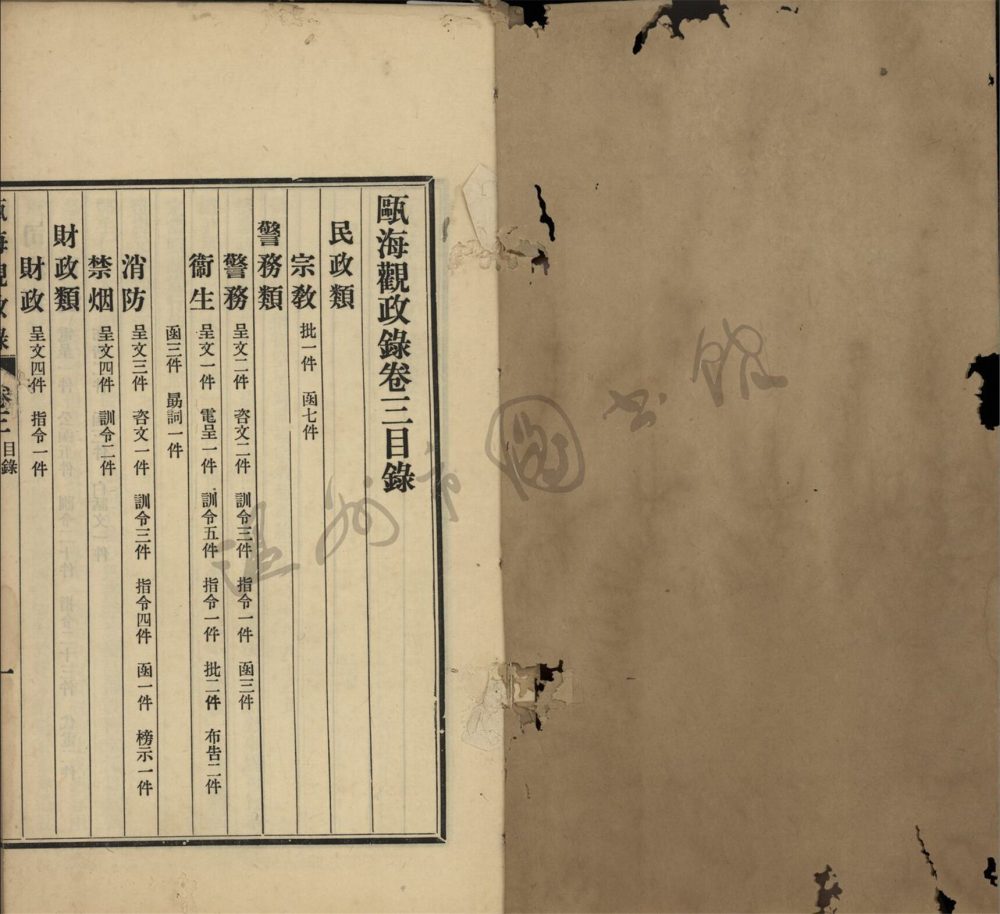 甌海觀政錄卷三目錄
民政類
宗教 批一件 函七件
警務類
警務 呈文二件 咨文二件 訓令三件 指令一件 函三件
衞生 呈文一件 電呈一件 訓令五件 指令一件 批二件 布告二件
函三件 勗詞一件
消防 呈文三件 咨文一件 訓令三件 指令四件 函一件 榜示一件
禁烟 呈文四件 訓令二件
財政類
財政 呈文四件 指令一件
甌海觀政錄 卷三 目錄 一
溫州市圖書館